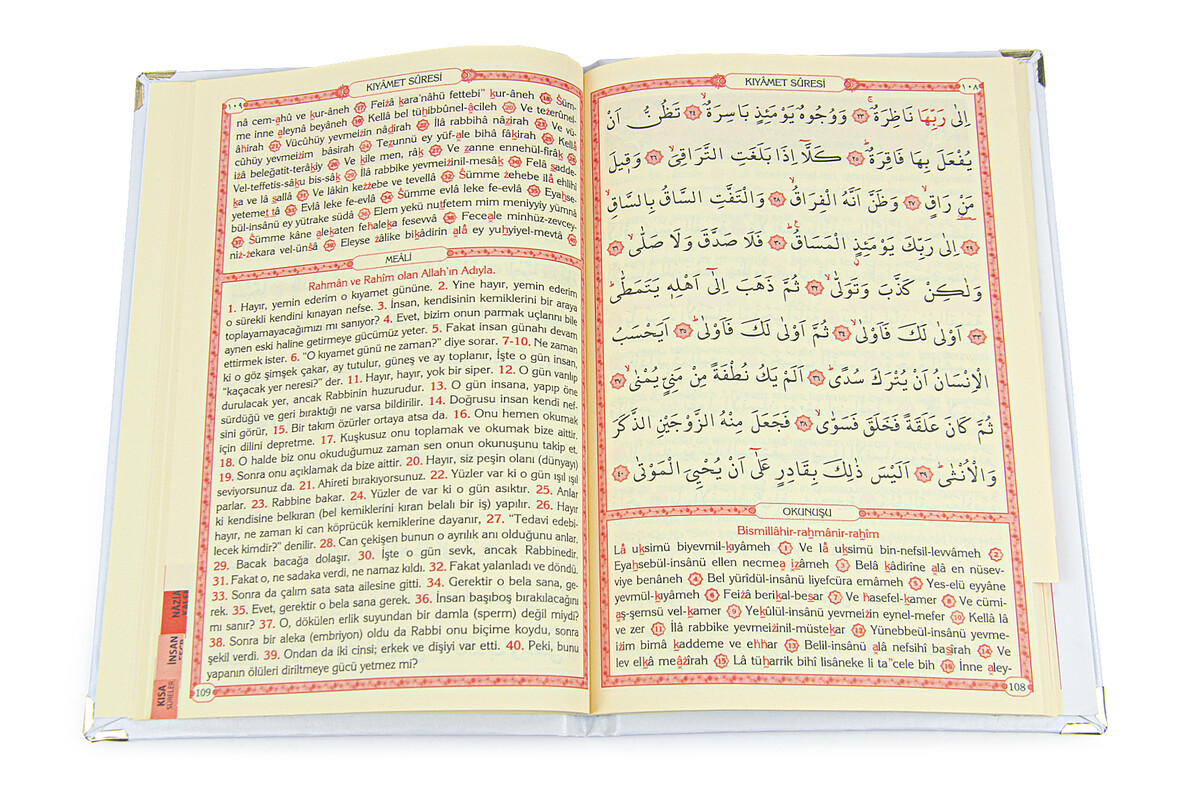 KIYÂMET SÛRESİ
١٠٨
اِلٰى رَبِّهَا نَاظِرَةٌۚ ﴿٢٣﴾ وَوُجُوهٌ يَوْمَئِذٍ بَاسِرَةٌۙ ﴿٢٤﴾ تَظُنُّ اَنْ
يُفْعَلَ بِهَا فَاقِرَةٌۜ ﴿٢٥﴾ كَلَّٓا اِذَا بَلَغَتِ التَّرَاقِيَۙ ﴿٢٦﴾ وَق۪يلَ
مَنْ رَاقٍۙ ﴿٢٧﴾ وَظَنَّ اَنَّهُ الْفِرَاقُۙ ﴿٢٨﴾ وَالْتَفَّتِ السَّاقُ بِالسَّاقِۙ
﴿٢٩﴾ اِلٰى رَبِّكَ يَوْمَئِذٍ الْمَسَاقُۜ ﴿٣٠﴾ فَلَا صَدَّقَ وَلَا صَلّٰىۙ ﴿٣١﴾
وَلٰكِنْ كَذَّبَ وَتَوَلّٰىۙ ﴿٣٢﴾ ثُمَّ ذَهَبَ اِلٰٓى اَهْلِه۪ يَتَمَطّٰىۜ
﴿٣٣﴾ اَوْلٰى لَكَ فَاَوْلٰىۙ ﴿٣٤﴾ ثُمَّ اَوْلٰى لَكَ فَاَوْلٰىۜ ﴿٣٥﴾ اَيَحْسَبُ
الْاِنْسَانُ اَنْ يُتْرَكَ سُدًىۜ ﴿٣٦﴾ اَلَمْ يَكُ نُطْفَةً مِنْ مَنِيٍّ يُمْنٰىۙ ﴿٣٧﴾
ثُمَّ كَانَ عَلَقَةً فَخَلَقَ فَسَوّٰىۙ ﴿٣٨﴾ فَجَعَلَ مِنْهُ الزَّوْجَيْنِ الذَّكَرَ
وَالْاُنْثٰىۜ ﴿٣٩﴾ اَلَيْسَ ذٰلِكَ بِقَادِرٍ عَلٰٓى اَنْ يُحْيِيَ الْمَوْتٰى ﴿٤٠﴾
OKUNUŞU
Bismillâhir-rahmânir-rahîm
Lâ uksimü biyevmil-kıyâmeh 1 Ve lâ uksimü bin-nefsil-levvâmeh 2
Eyahsebül-insânü ellen necmea izâmeh 3 Belâ kâdirîne alâ en nüsev-
viye benâneh 4 Bel yürîdül-insânü liyefcüra emâmeh 5 Yes-elü eyyâne
yevmül-kıyâmeh 6 Feizâ berikal-besar 7 Ve hasefel-kamer 8 Ve cümi-
aş-şemsü vel-kamer 9 Yekûlül-insânü yevmeizin eynel-mefer 10 Kellâ lâ
ve zer 11 İlâ rabbike yevmeizinil-müstekar 12 Yünebbeül-insânü yevme-
izim bimâ kaddeme ve ehhar 13 Belil-insânü alâ nefsihî basîrah 14 Ve
lev elkâ meâzîrah 15 Lâ tüharrik bihî lisâneke li ta"cele bih 16 İnne aley-
108
KIYÂMET SÛRESİ
١٠٩
nâ cem-ahû ve kur-âneh 17 Feizâ kara'nâhü fettebi" kur-âneh 18 Süm-
me inne aleynâ beyâneh 19 Kellâ bel tühibbûnel-âcileh 20 Ve tezerûnel-
âhirah 21 Vücûhüy yevmeizin nâdirah 22 İlâ rabbihâ nâzirah 23 Ve vü-
cûhüy yevmeizim bâsirah 24 Tezunnü ey yüf-ale bihâ fâkirah 25 Kellâ
izâ beleğatit-terâkıy 26 Ve kîle men, râk 27 Ve zanne ennehül-firâk 28
Vel-teffetis-sâku bis-sâk 29 İlâ rabbike yevmeizinil-mesâk 30 Felâ sadde-
ka ve lâ sallâ 31 Ve lâkin kezzebe ve tevellâ 32 Sümme zehebe ilâ ehlihî
yetemet tâ 33 Evlâ leke fe-evlâ 34 Sümme evlâ leke fe-evlâ 35 Eyahse-
bül-insânü ey yütrake südâ 36 Elem yekü nutfetem mim meniyyiy yümnâ
37 Sümme kâne alekaten fehaleka fesevvâ 38 Feceale minhüz-zevcey-
niz-zekara vel-ünsâ 39 Eleyse zâlike bikâdirin alâ ey yuhyiyel-mevtâ 40
MEÂLİ
Rahmân ve Rahîm olan Allah'ın Adıyla.
1. Hayır, yemin ederim o kıyamet gününe. 2. Yine hayır, yemin ederim
o sürekli kendini kınayan nefse. 3. İnsan, kendisinin kemiklerini bir araya
toplayamayacağımızı mı sanıyor? 4. Evet, bizim onun parmak uçlarını bile
aynen eski haline getirmeye gücümüz yeter. 5. Fakat insan günahı devam
ettirmek ister. 6. "O kıyamet günü ne zaman?" diye sorar. 7-10. Ne zaman
ki o göz şimşek çakar, ay tutulur, güneş ve ay toplanır, İşte o gün insan,
"kaçacak yer neresi?" der. 11. Hayır, hayır, yok bir siper. 12. O gün varılıp
durulacak yer, ancak Rabbinin huzurudur. 13. O gün insana, yapıp öne
sürdüğü ve geri bıraktığı ne varsa bildirilir. 14. Doğrusu insan kendi nef-
sini görür, 15. Bir takım özürler ortaya atsa da. 16. Onu hemen okumak
için dilini depretme. 17. Kuşkusuz onu toplamak ve okumak bize aittir.
18. O halde biz onu okuduğumuz zaman sen onun okunuşunu takip et.
19. Sonra onu açıklamak da bize aittir. 20. Hayır, siz peşin olanı (dünyayı)
seviyorsunuz da. 21. Ahireti bırakıyorsunuz. 22. Yüzler var ki o gün ışıl ışıl
parlar. 23. Rabbine bakar. 24. Yüzler de var ki o gün asıktır. 25. Anlar
ki kendisine belkıran (bel kemiklerini kıran belalı bir iş) yapılır. 26. Hayır
hayır, ne zaman ki can köprücük kemiklerine dayanır, 27. "Tedavi edebi-
lecek kimdir?" denilir. 28. Can çekişen bunun o ayrılık anı olduğunu anlar.
29. Bacak bacağa dolaşır. 30. İşte o gün sevk, ancak Rabbinedir.
31. Fakat o, ne sadaka verdi, ne namaz kıldı. 32. Fakat yalanladı ve döndü.
33. Sonra da çalım sata sata ailesine gitti. 34. Gerektir o bela sana, ge-
rek. 35. Evet, gerektir o bela sana gerek. 36. İnsan başıboş bırakılacağını
mı sanır? 37. O, dökülen erlik suyundan bir damla (sperm) değil miydi?
38. Sonra bir aleka (embriyon) oldu da Rabbi onu biçime koydu, sonra
şekil verdi. 39. Ondan da iki cinsi; erkek ve dişiyi var etti. 40. Peki, bunu
yapanın ölüleri diriltmeye gücü yetmez mi?
109
NÂZİA
İNSAN
KISA
SÛRELER